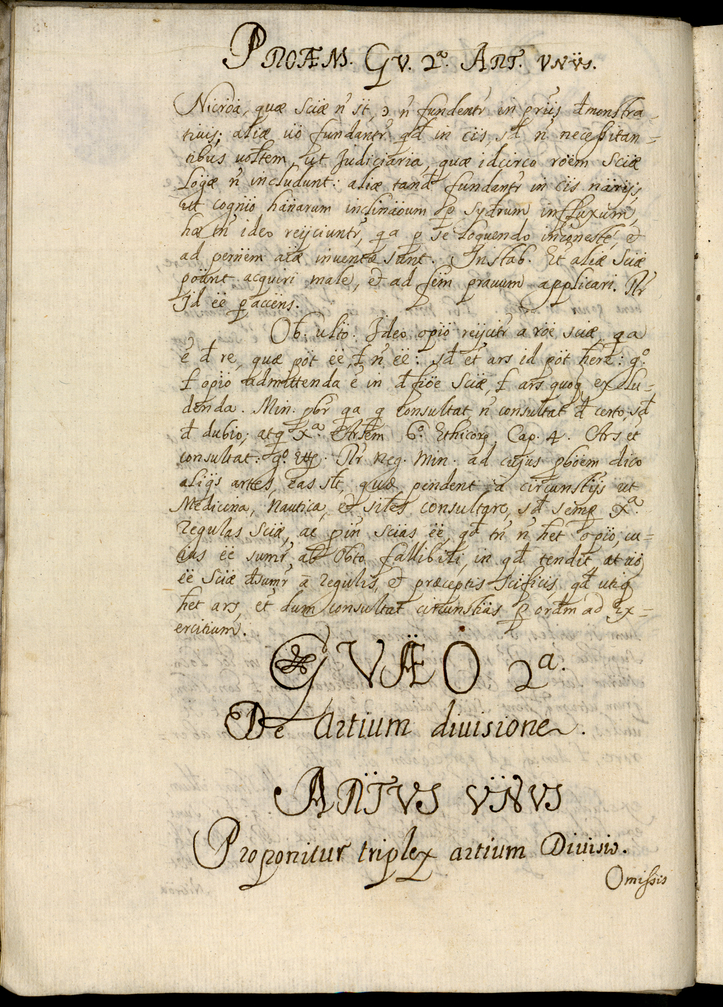 PROÆM. QV. 2ª. ART. VNVS.
Nicroã, quæ sciæ ñ st, ɔ ñ fundentr in prijs dmonstra-
tiuis; aliæ uo fundantr qd in eis, sd ñ necessitan-
tibus uoltem, ut Judiciaria, quæ idcirco roem sciæ
Logæ ñ includunt: aliæ tand fundantr in eis
ut cognio hanarum inclinaoum p sydrum influxum,
hæ ideo reijciuntr, qa p se loquendo inhoneste, et
ad inventæ sunt. Instab. Et aliæ sciæ
pount acquiri male, et ad fem prauum applicari. Rr
Id ee paccens.
Ob. ulto. Ideo opio reijcitr a roe sciæ, qa
e d re, quæ pot ee, et ñ ee: sd et ars id pot here: go
l opio admittenda e in dfioe sciæ, l ars quoq exclu-
denda. Min. pbr qa q consultat, ñ consultat d certo, sd
d dubio; atq xª Artem 6º. Ethicorq Cap. 4. Ars et
consultat: go Rr neg. Min. ad cujus pboem dico
aliqs artes, eas st, quæ pendent a circunstijs ut
Medicina, nautica, et siles consultare, sd semp xª
regulas sciæ, ac pin scias ee, qd tn ñ het opio, cu-
ius ee sumr ab obto fallibili, in qd tendit, at uo
ee sciæ dsumr a regulis, et præceptis scificis, qd utiq
het ars, et dum consultat circunstiis p ordm ad ex-
ercitium.
QVÆO 2ª.
De artium diuisione.
ARTVS VNVS
Proponitur triplex artium Diuisio.
Omissis